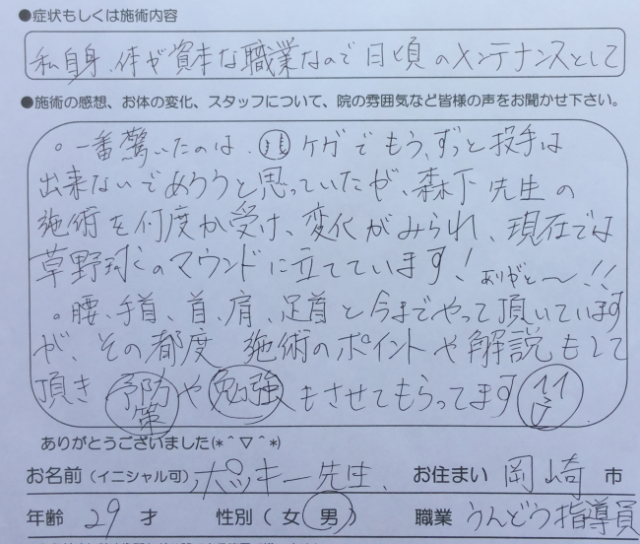 ●症状もしくは施術内容
私自身、体が資本な職業なので日頃のメンテナンスとして
●施術の感想、お体の変化、スタッフについて、院の雰囲気など皆様の声をお聞かせ下さい。
。一番驚いたのは、肩ケガでもう、ずっと投手は
出来ないであろうと思っていたが、森下先生の
施術を何度か受け、変化がみられ、現在では
草野球のマウンドに立てています!ありがと〜!!
。腰、手首、首、肩、足首と今までやって頂いています
が、その都度施術のポイントや解説もして
頂き予防策や勉強もさせてもらってます
ありがとうございました(*^▽^*)
お名前(イニシャル可) ポッキー先生、 お住まい 岡崎 市
年齢 29 才 性別(女 男) 職業 うんどう指導員